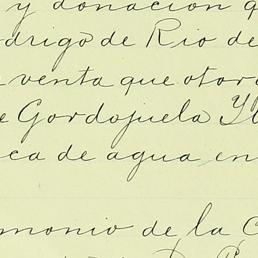 y donacion q
odrigo de Rio de
venta que otorg
e Gordojuela Y
ca de agua en
monio de la C